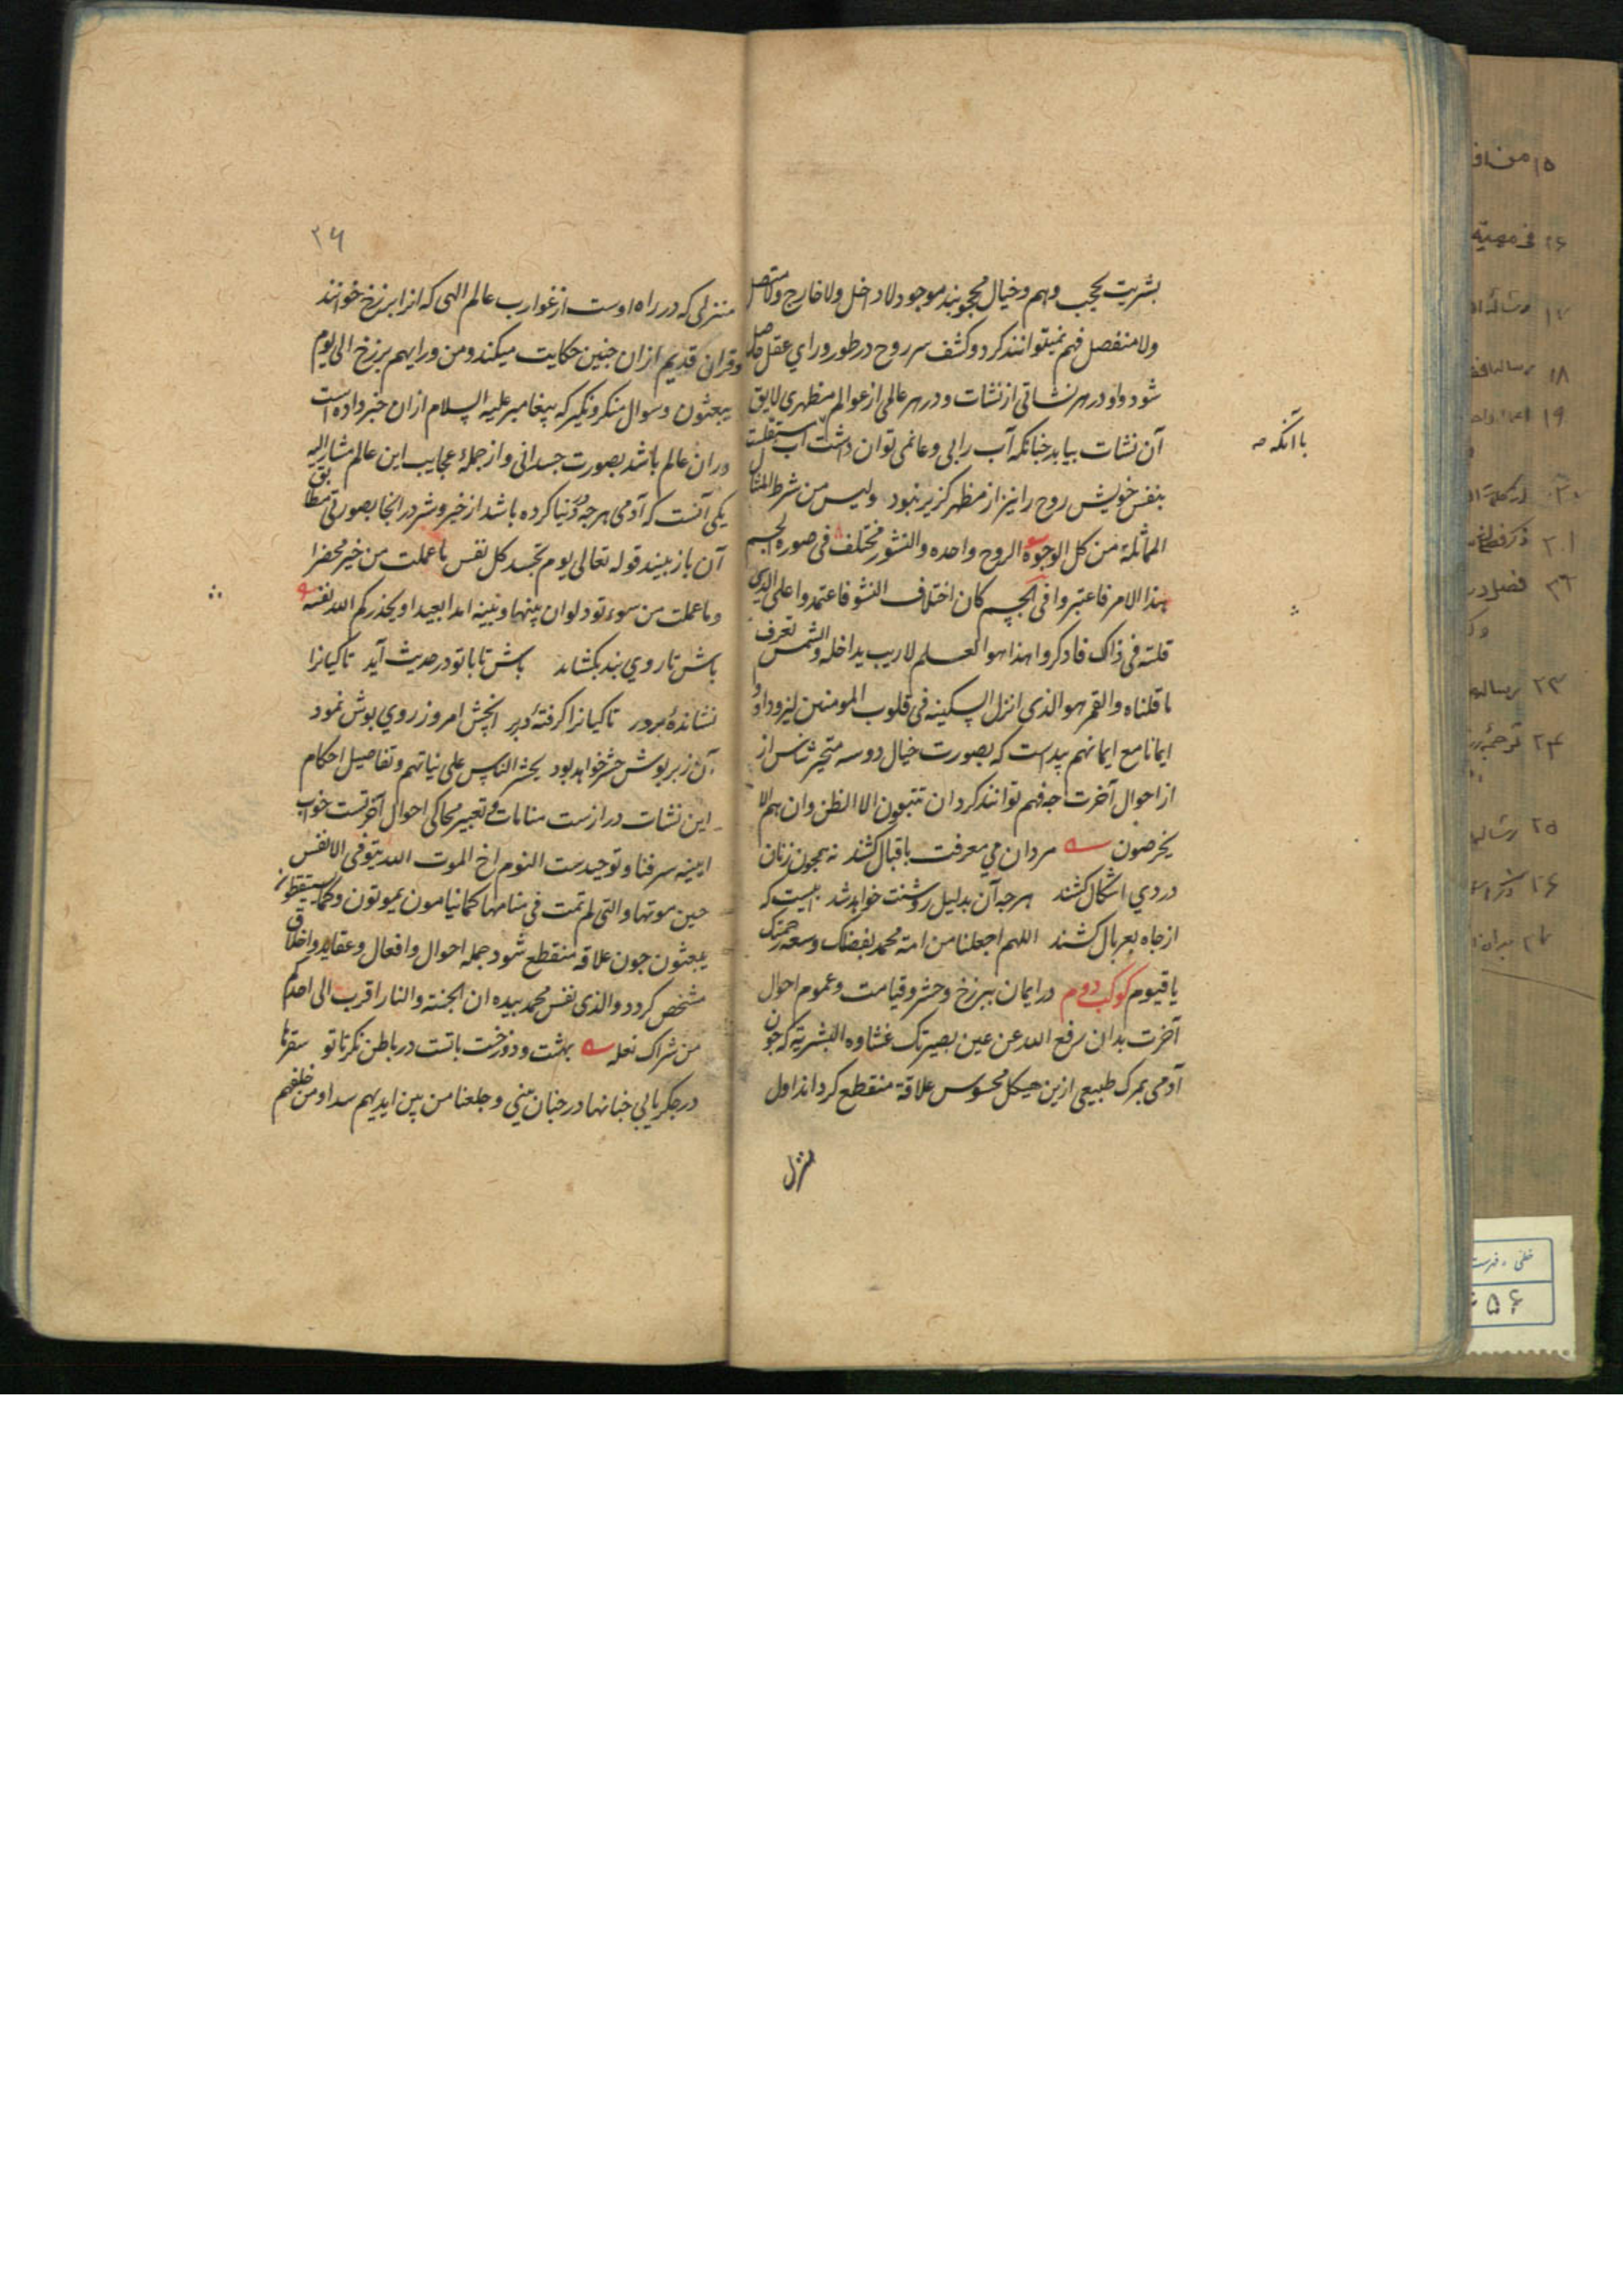 بشریت بحجب وهم وخیال محجوبند موجود لا داخل ولا خارج ولا متصل
ولا منفصل فهم نمیتوانند کرد وکشف سر روح در طور ورای عقل حاصل
شود واو در هر نشاتی از نشات ودر هر عالمی از عوالم مظهری لایق
آن نشات بیابد جنانکه آب را بی وعا نمی توان داشت آب مستقلست
با آنکه صح
بنفس خویش روح را نیز از مظهر کزیر نبود ولیس من شرط المثال
المماثلة من کل الوجوه الروح واحده والنشور مختلف فی صورة الجسم
هذا الامر فاعتبروا فی الجسم کان اختلاف النشو فاعتمدوا علی الذی
قلته فی ذاک فادکروا هذا هو العلم لا ریب یداخله والشمس تعرف
ما قلناه والقمر هو الذی انزل السکینه فی قلوب المومنین لیزدادوا
ایمانا مع ایمانهم پیداست که بصورت خیال دو سه متحیر ناس از
از احوال آخرت جه فهم توانند کرد ان تتبعون الا الظن وان هم الا
یخرصون مردان می معرفت باقبال کشند نه همجون زنان
دردی اشکال کشند هرجه آن بدلیل روشنت خواهد شد آبیست که
از جاه بغربال کشند اللهم اجعلنا من امة محمد بفضلک وسعة رحمتک
یا قیوم کوکب دوم در ایمان ببرزخ وحشر وقیامت وعموم احوال
آخرت بدان رفع الله عن عین بصیرتک غشاوه البشریة که جون
آدمی بمرک طبیعی ازین هیکل محسوس علاقة منقطع کرداند اول
منزل
۲۶
منزلی که در راه اوست از غوارب عالم الهی که انرا برزخ خوانند
وقران قدیم ازان جنین حکایت میکند ومن ورایهم برزخ الی یوم
یبعثون وسوال منکر ونکیر که پیغامبر علیه السلام ازان خبر داده است
دران عالم باشد بصورت جسدانی واز جملهٔ عجایب این عالم مشار الیه
یکی آنست که آدمی هرجه در دنیا کرده باشد از خیر وشر در انجا بصورتی مطابق
آن باز بیند قوله تعالی یوم تجد کل نفس ما عملت من خیر محضرا
وما عملت من سوء تود لو ان بینها وبینه امدا بعیدا ویحذرکم الله نفسه
باش تا روی بند بکشاند باش تا با تو در حدیث آید تا کیانرا
نشاندهٔ بر در تا کیانرا کرفتهٔ در بر آنچش امروز روی بوش نمود
آن زبر بوش حشر خواهد بود یحشر الناس علی نیاتهم وتفاصیل احکام
این نشات درازست منامات وتعبیر محاکی احوال آخرتست خواب
اینه سر فنا وتوحیدست النوم اخ الموت الله یتوفی الانفس
حین موتها والتی لم تمت فی منامها کما ینامون یموتون وکما یستیقظون
یبعثون جون علاقه منقطع شود جمله احوال وافعال وعقاید واخلاق
مشخص کردد والذی نفس محمد بیده ان الجنة والنار اقرب الی احدکم
من شراک نعله بهشت ودوزخت باتست در باطن نکر تا تو سقرها
در جکر یابی جنانها در جنان بینی وجعلنا من بین ایدیهم سدا ومن خلفهم